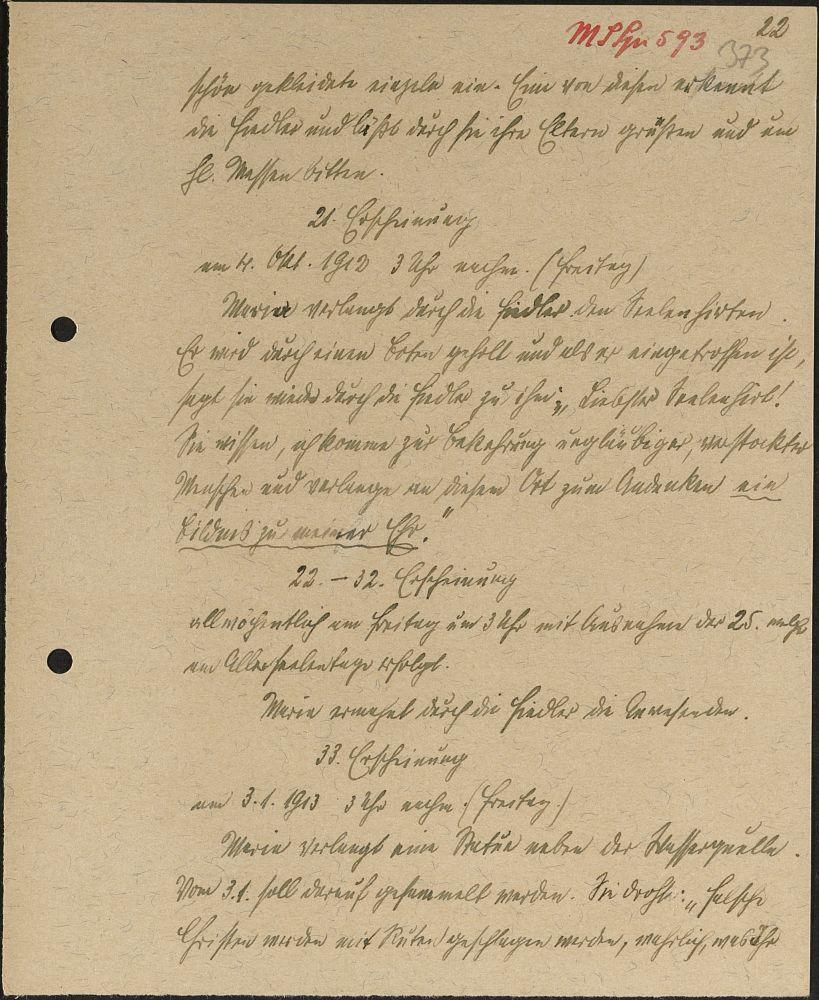 22
373
schön gekleidete einzeln ein. Eine von diesen erkennt
die Fiedler und läßt durch sie ihre Eltern grüßen und um
hl. Messen bitten.
21. Erscheinung
am 4. Okt. 1912 3 Uhr nachm. (Freitag)
Maria verlangt durch die Fiedler den Seelenhirten.
Er wird durch einen Boten geholt und als er eingetroffen ist,
sagt sie wieder durch die Fiedler zu ihm: „Liebster Seelenhirt!
Sie wissen, ich komme zur Bekehrung ungläubiger, verstockter
Menschen und verlange an diesem Ort zum Andenken ein
Bildnis zu meiner Ehr."
22. – 32. Erscheinung
allwöchentlich am Freitag um 3 Uhr mit Ausnahme der 25. welche
am Allerseelentage erfolgt.
Maria ermahnt durch die Fiedler die Anwesenden.
33. Erscheinung
am 3.1. 1913 3 Uhr nachm. (Freitag)
Maria verlangt eine Statue neben der Wasserquelle.
Vom 3.1. soll darauf gesammelt werden. Sie droht: „Falsche
Christen werden mit Ruten geschlagen werden, wahrlich, was Ihr